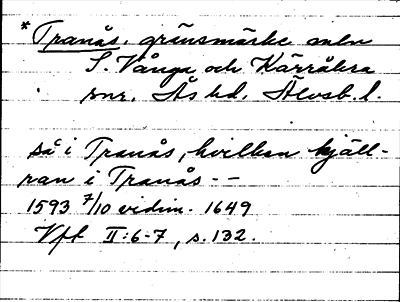 *Tranås. gränsmärke mln
S. Vånga och Kärråkra
snr. Ås hd. Älvsb. l.
så i Tranås, hvilken kjäll-
ran i Tranås - -
1593 7/10 vidim. 1649
Vfl II:6-7, s. 132.